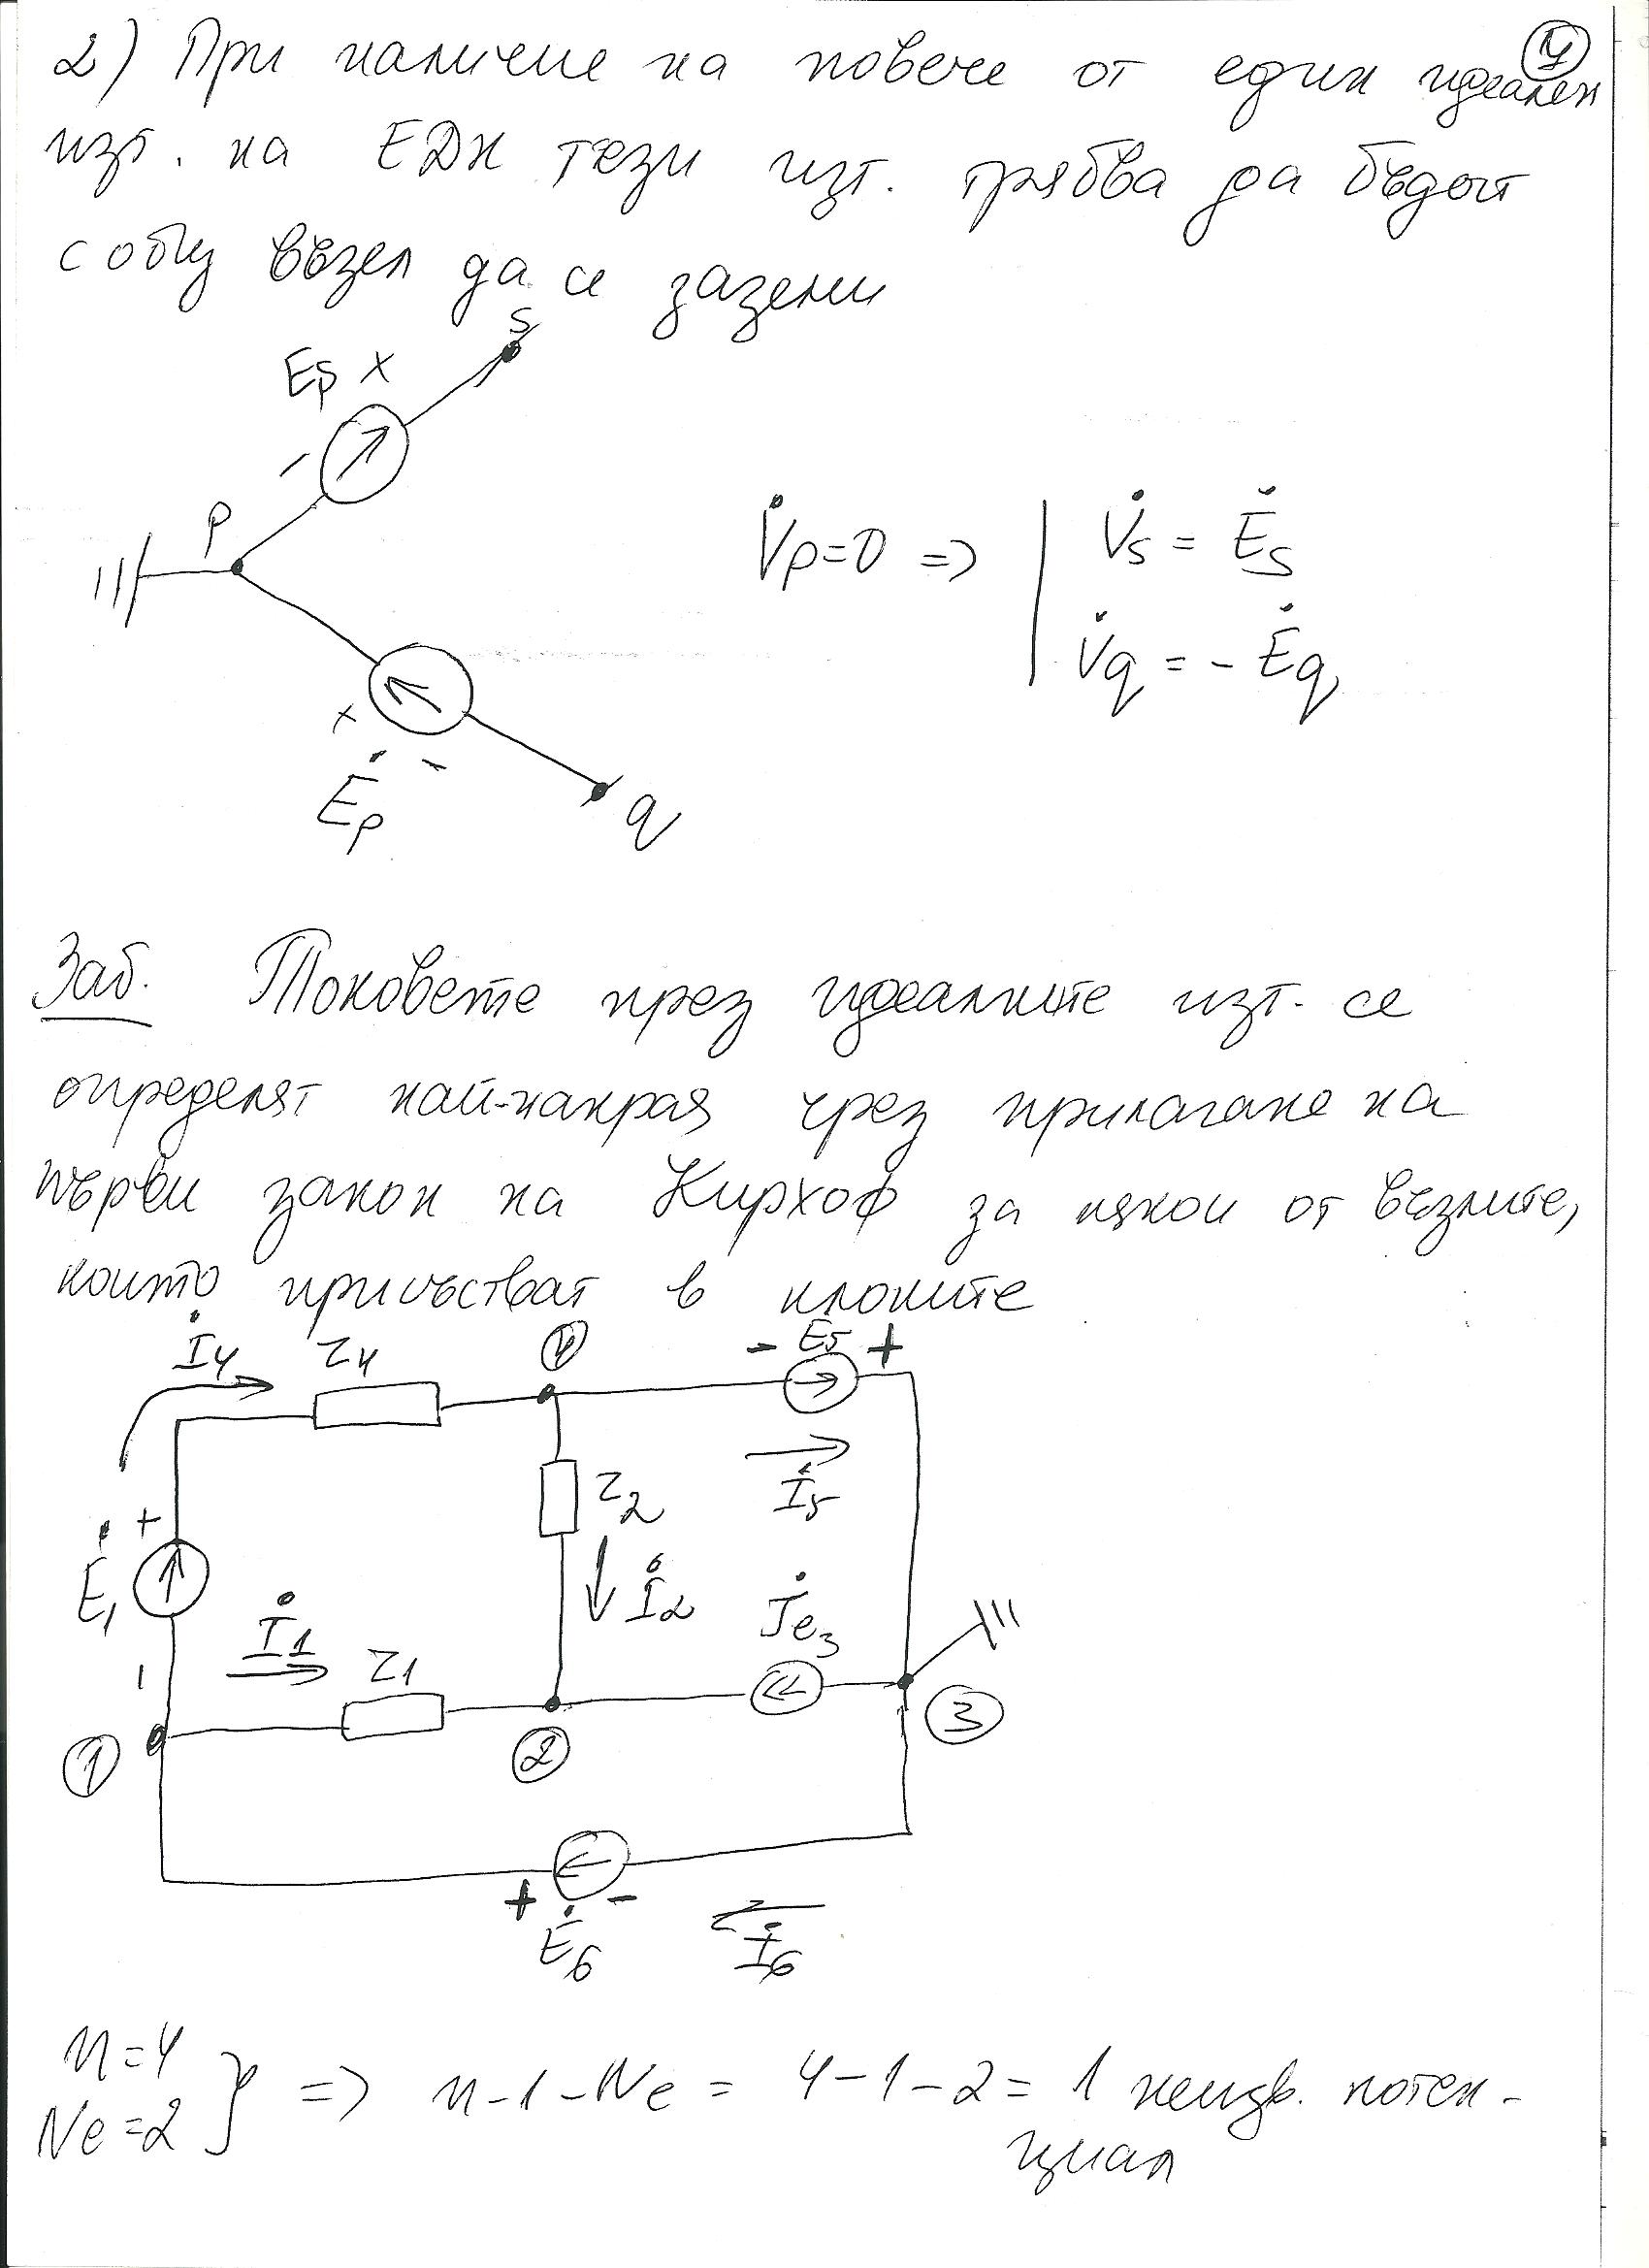 4
2) При наличие на повече от един идеален
изт. на ЕДН тези изт. трябва да бъдат
с общ възел да се заземи
S
Es x
-
P
V̇p=0 => | V̇s = Ės
V̇q = - Ėq
x
-
Ėp
q
Заб. Токовете през идеалните изт. се
определят най-накрая чрез прилагане на
първи закон на Кирхоф за някои от възлите,
които присъстват в клоните
İ4 Z4 4 - E5 +
Z2 İ5
+
Ė1
İ2 J̇e3
İ1
Z1
-
1 2 3
+ -
Ė6 İ6
n=4
Ne=2 } => n-1-Ne = 4-1-2= 1 неизв. потен-
циал